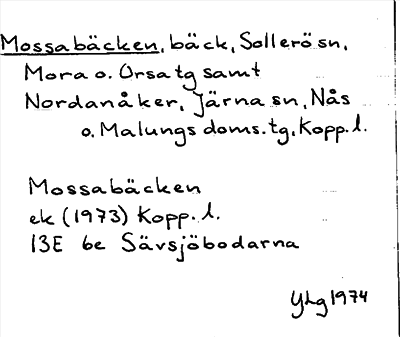 Mossabäcken, bäck, Sollerö sn,
Mora o. Orsa tg samt
Nordanåker, Järna sn, Nås
o. Malungs doms. tg, Kopp. l.
Mossabäcken
ek (1973) Kopp. l.
13E 6e Sävsjöbodarna
YLg 1974